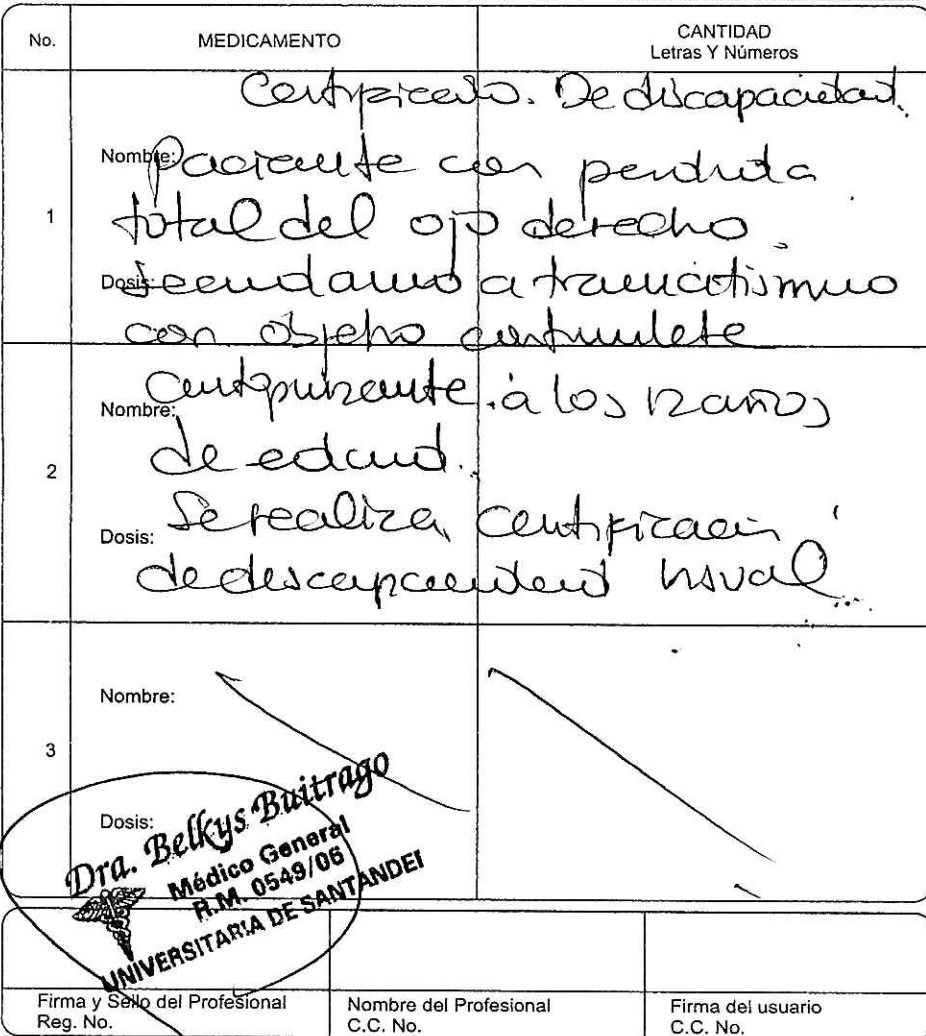 No.
MEDICAMENTO
CANTIDAD
Letras Y Números
Certificado. De discapacidad.
1
Nombre:
Paciente con perdida
total del ojo derecho
Dosis:
secundario a traumatismo
con objeto
2
Nombre:
a los 12 años
de edad.
Dosis:
Se realiza certificación
de discapacidad visual
3
Nombre:
Dosis:
Dra. Belkys Buitrago
Médico General
R.M. 0549/06
UNIVERSITARIA DE SANTANDE
Firma y Sello del Profesional
Reg. No.
Nombre del Profesional
C.C. No.
Firma del usuario
C.C. No.